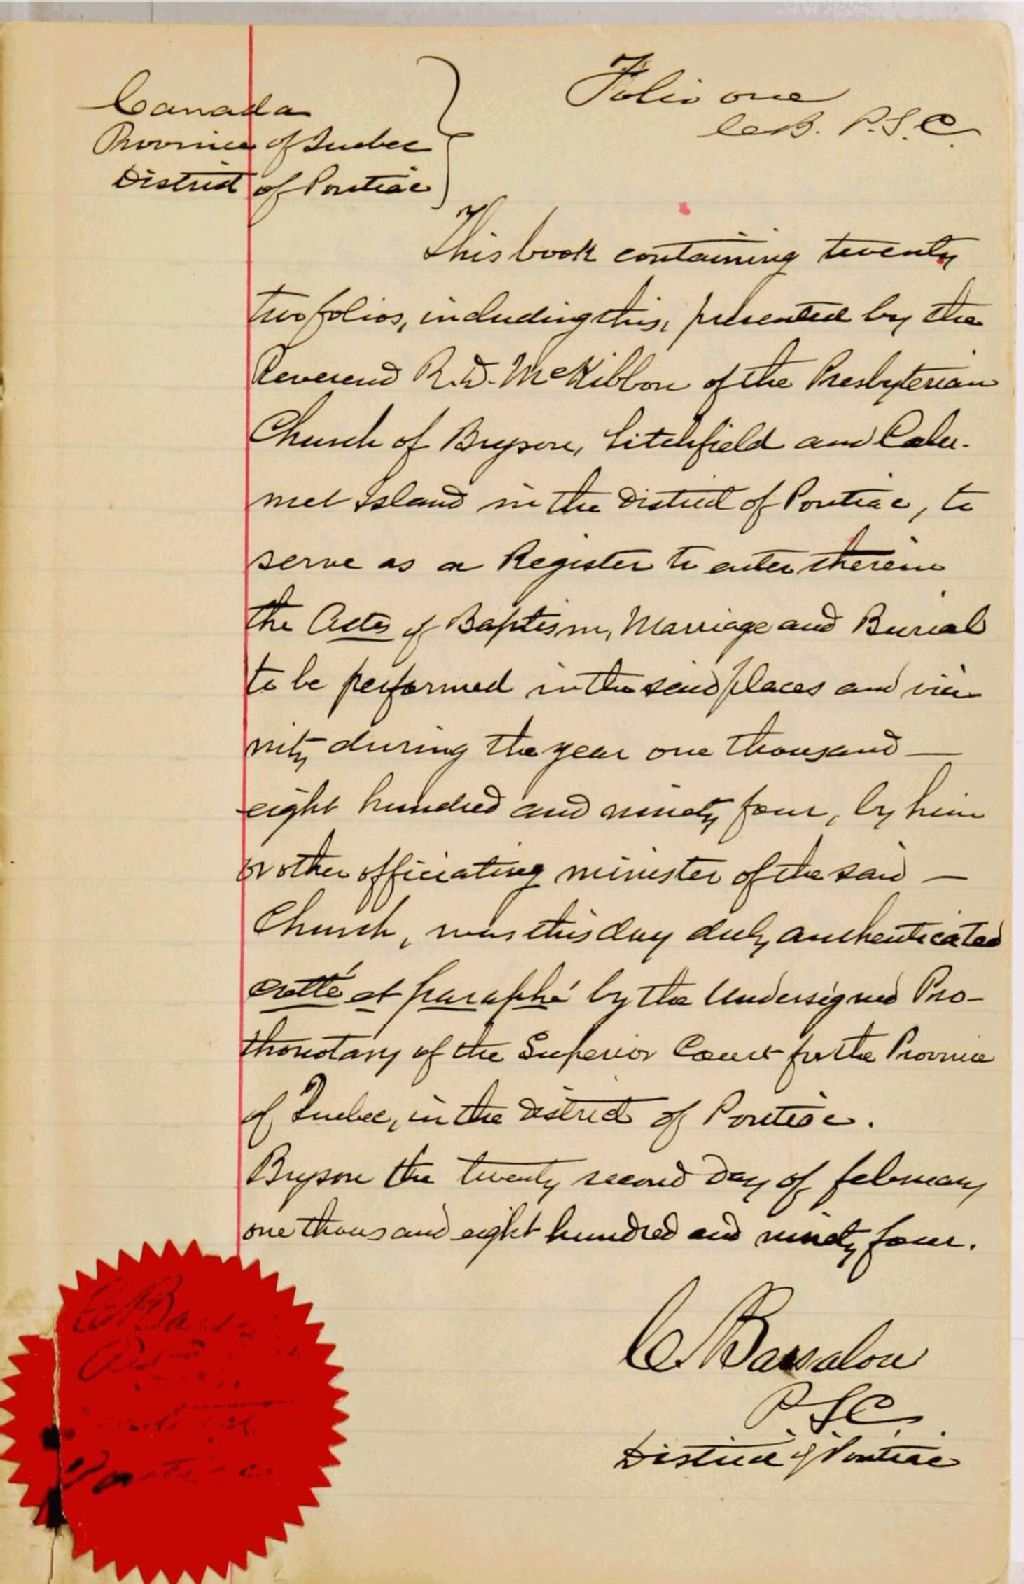 Canada
Province of Quebec
District of Pontiac
Folio one
C.B. P.S.C.
This book containing twenty
two folios, including this, presented by the
Reverend R.D. McKibbon of the Presbyterian
Church of Bryson, Litchfield and Calu-
met Island in the District of Pontiac, to
serve as a Register to enter therein
the Actes of Baptism, Marriage and Burial
to be performed in the said places and vici
nity during the year one thousand —
eight hundred and ninety four, by him
or other officiating minister of the said —
Church, was this day duly authenticated
cotté et paraphé by the Undersigned Pro-
thonotary of the Superior Court for the Province
of Quebec, in the District of Pontiac.
Bryson the twenty second day of february
one thousand eight hundred and ninety four.
C. Bassalou
P.S.C.
District of Pontiac